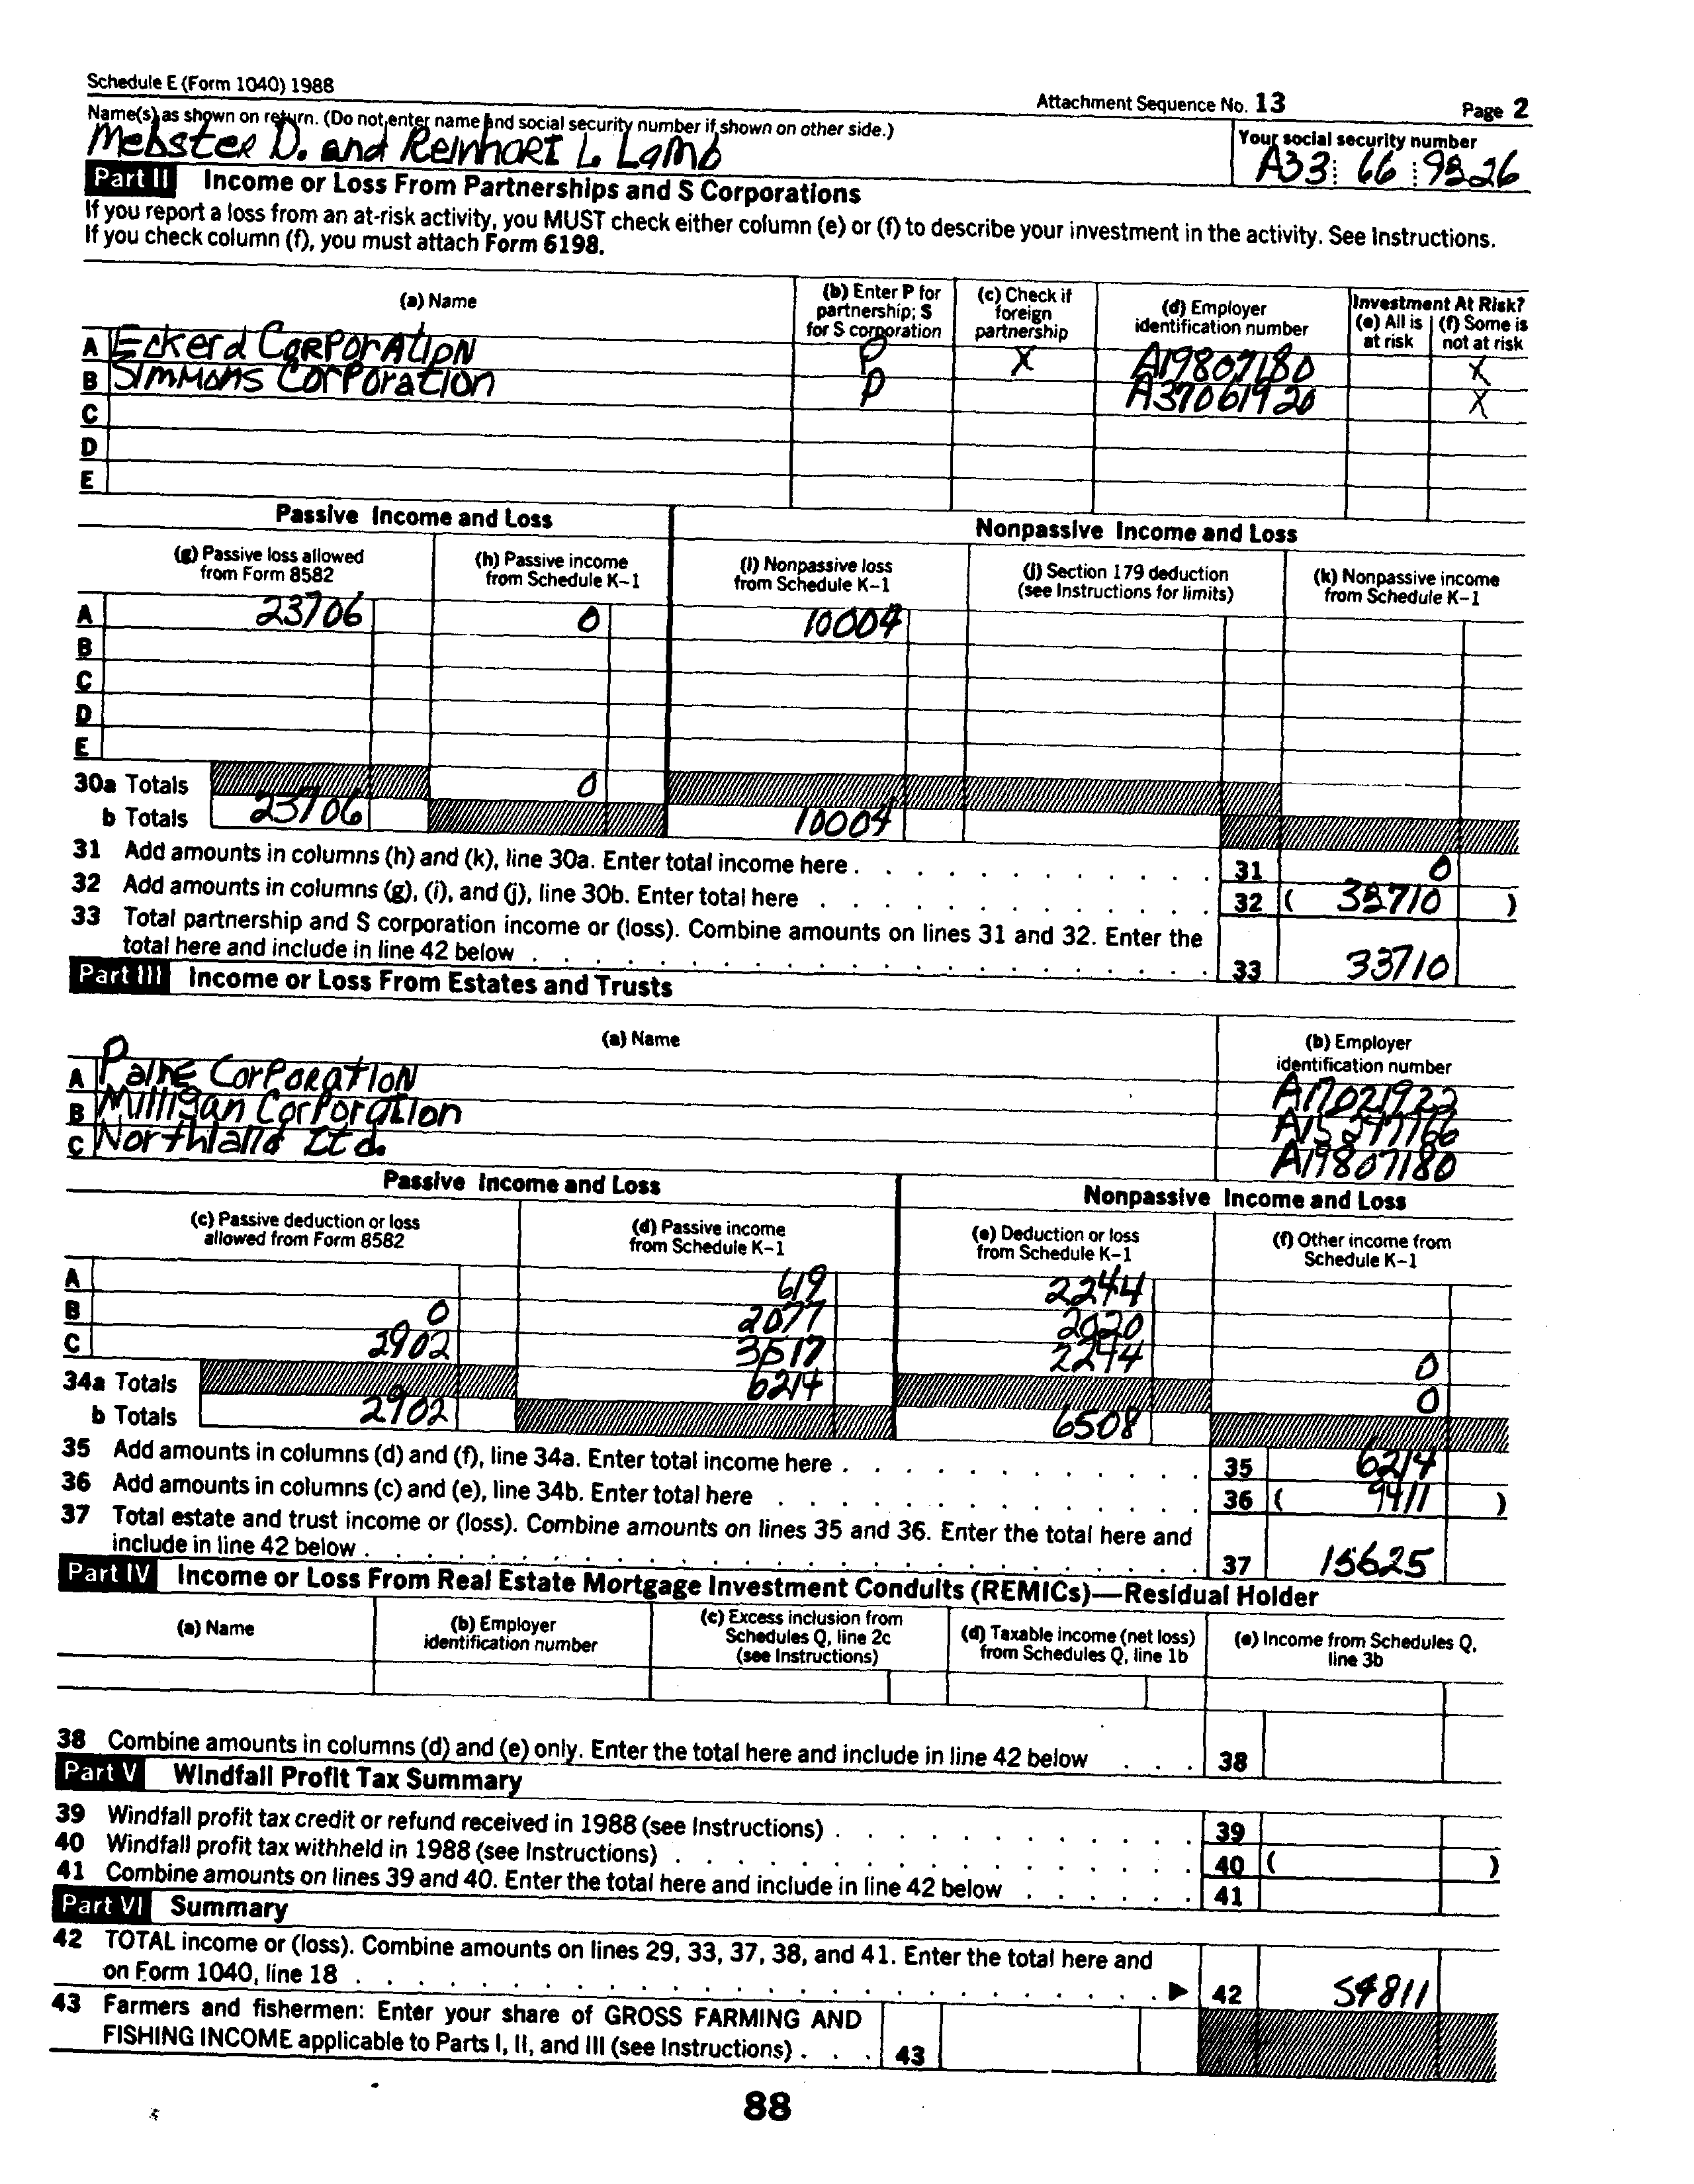 Schedule E (Form 1040) 1988
Attachment Sequence No. 13 Page 2
Name(s) as shown on return. (Do not enter name and social security number if shown on other side.)
Your social security number
Mebster D. and Reinhart L. Lamb
A33 66 9326
Part II Income or Loss From Partnerships and S Corporations
If you report a loss from an at-risk activity, you MUST check either column (e) or (f) to describe your investment in the activity. See Instructions.
If you check column (f), you must attach Form 6198.
(a) Name
(b) Enter P for partnership; S for S corporation
(c) Check if foreign partnership
(d) Employer identification number
Investment At Risk?
(e) All is at risk
(f) Some is not at risk
A Eckerd Corporation P X A19807180 X
B Simmons Corporation P A37061920 X
C
D
E
Passive Income and Loss
Nonpassive Income and Loss
(g) Passive loss allowed from Form 8582
(h) Passive income from Schedule K–1
(i) Nonpassive loss from Schedule K–1
(j) Section 179 deduction (see Instructions for limits)
(k) Nonpassive income from Schedule K–1
A 23706 0 10004
B
C
D
E
30a Totals 0
b Totals 23706 10004
31 Add amounts in columns (h) and (k), line 30a. Enter total income here 31 0
32 Add amounts in columns (g), (i), and (j), line 30b. Enter total here 32 ( 33710 )
33 Total partnership and S corporation income or (loss). Combine amounts on lines 31 and 32. Enter the
total here and include in line 42 below 33 33710
Part III Income or Loss From Estates and Trusts
(a) Name
(b) Employer identification number
A Paine Corporation A17021922
B Milligan Corporation A15247166
C Northland Ltd. A19807180
Passive Income and Loss
Nonpassive Income and Loss
(c) Passive deduction or loss allowed from Form 8582
(d) Passive income from Schedule K–1
(e) Deduction or loss from Schedule K–1
(f) Other income from Schedule K–1
A 619 2244
B 0 2077 2020
C 2902 3517 2244 0
34a Totals 6214 0
b Totals 2902 6508
35 Add amounts in columns (d) and (f), line 34a. Enter total income here 35 6214
36 Add amounts in columns (c) and (e), line 34b. Enter total here 36 ( 9411 )
37 Total estate and trust income or (loss). Combine amounts on lines 35 and 36. Enter the total here and
include in line 42 below 37 15625
Part IV Income or Loss From Real Estate Mortgage Investment Conduits (REMICs)—Residual Holder
(a) Name
(b) Employer identification number
(c) Excess inclusion from Schedules Q, line 2c (see Instructions)
(d) Taxable income (net loss) from Schedules Q, line 1b
(e) Income from Schedules Q, line 3b
38 Combine amounts in columns (d) and (e) only. Enter the total here and include in line 42 below 38
Part V Windfall Profit Tax Summary
39 Windfall profit tax credit or refund received in 1988 (see Instructions) 39
40 Windfall profit tax withheld in 1988 (see Instructions) 40 ( )
41 Combine amounts on lines 39 and 40. Enter the total here and include in line 42 below 41
Part VI Summary
42 TOTAL income or (loss). Combine amounts on lines 29, 33, 37, 38, and 41. Enter the total here and
on Form 1040, line 18 ▶ 42 54811
43 Farmers and fishermen: Enter your share of GROSS FARMING AND
FISHING INCOME applicable to Parts I, II, and III (see Instructions) 43
88